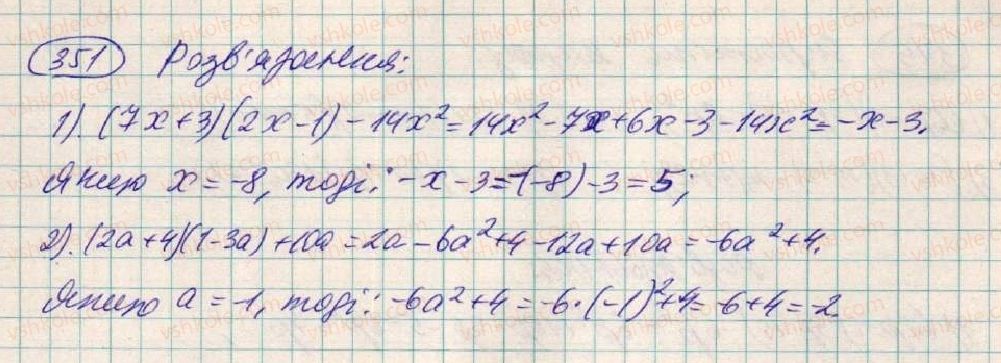 351 Розв'язання:
1) (7x+3)(2x-1)-14x²=14x²-7x+6x-3-14x²=-x-3.
Якщо x=-8, тоді: -x-3=-(-8)-3=5;
2). (2a+4)(1-3a)+10a=2a-6a²+4-12a+10a=-6a²+4.
Якщо a=-1, тоді: -6a²+4=-6·(-1)²+4=-6+4=-2